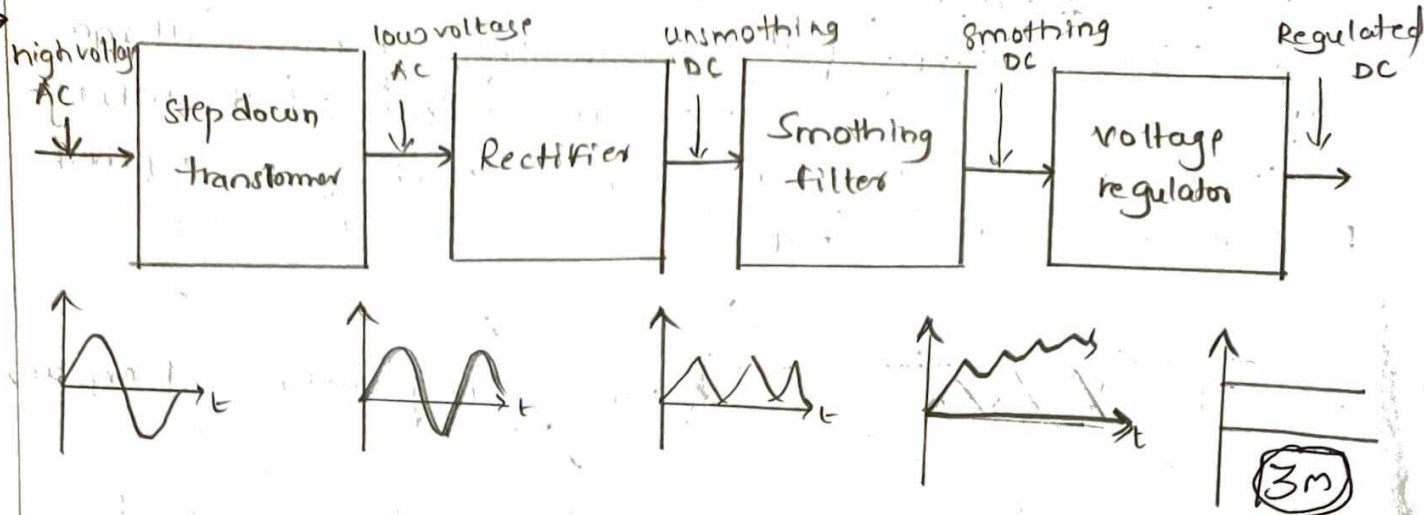 high voltag
AC
Step down
transformer
low voltage
AC
Rectifier
unsmothing
DC
Smothing
filter
smothing
DC
voltage
regulator
Regulated
DC
t
t
t
t
3m